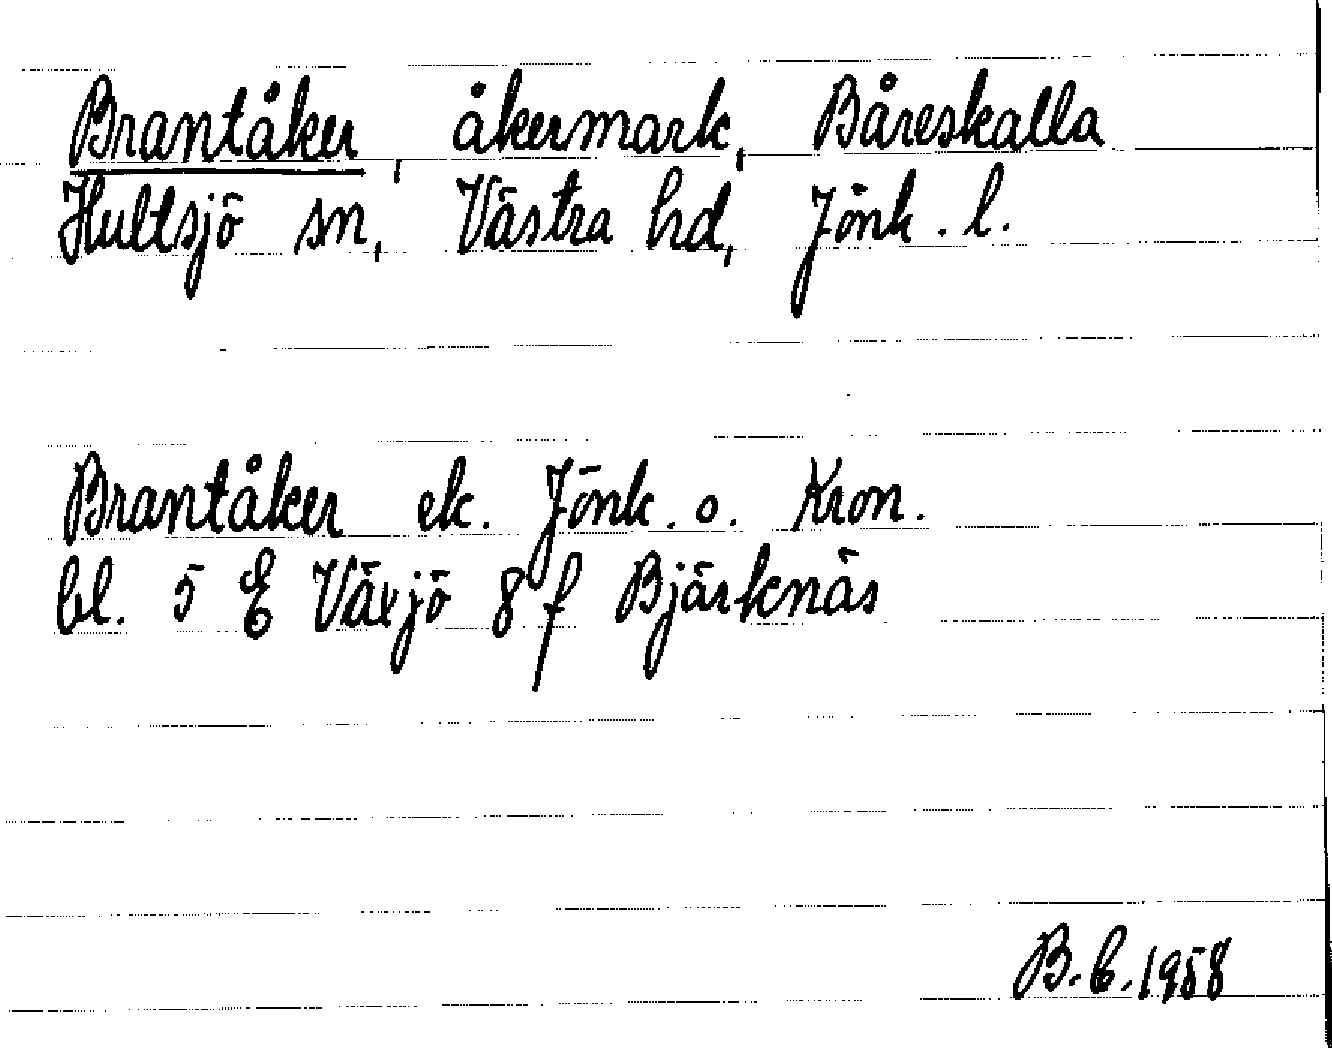 Brantåker, åkermark, Båreskalla
Hultsjö sn, Västra hd, Jönk. l.
Brantåker ek. Jönk. o. Kron.
bl. 5 E Växjö 8 f Bjärknäs
B.b. 1958